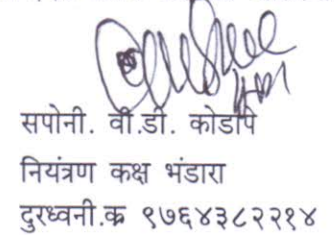 सपोनी. वी.डी. कोडापे
नियंत्रण कक्ष भंडारा
दुरध्वनी.क ९७६४३८२२१४